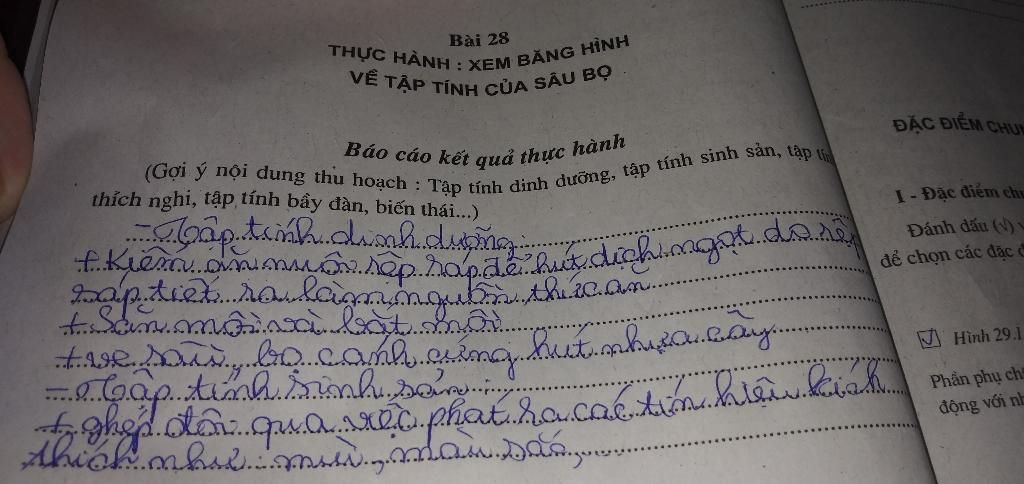 Bài 28
THỰC HÀNH : XEM BĂNG HÌNH
VỀ TẬP TÍNH CỦA SÂU BỌ
Báo cáo kết quả thực hành
(Gợi ý nội dung thu hoạch : Tập tính dinh dưỡng, tập tính sinh sản, tập tính
thích nghi, tập tính bầy đàn, biến thái...)
- Tập tính dinh dưỡng:
+ Kiếm ăn nuôi rệp sáp để hút dịch ngọt do rệp
sáp tiết ra làm nguồn thức ăn
+ Săn mồi và bắt mồi
+ ve sầu, bọ cánh cứng hút nhựa cây
- Tập tính sinh sản:
+ ghép đôi qua việc phát ra các tín hiệu kích
thích như: mùi, màu sắc,
ĐẶC ĐIỂM CHUN
I - Đặc điểm chu
Đánh dấu (√) v
để chọn các đặc đ
Hình 29.1
Phần phụ ch
động với nh